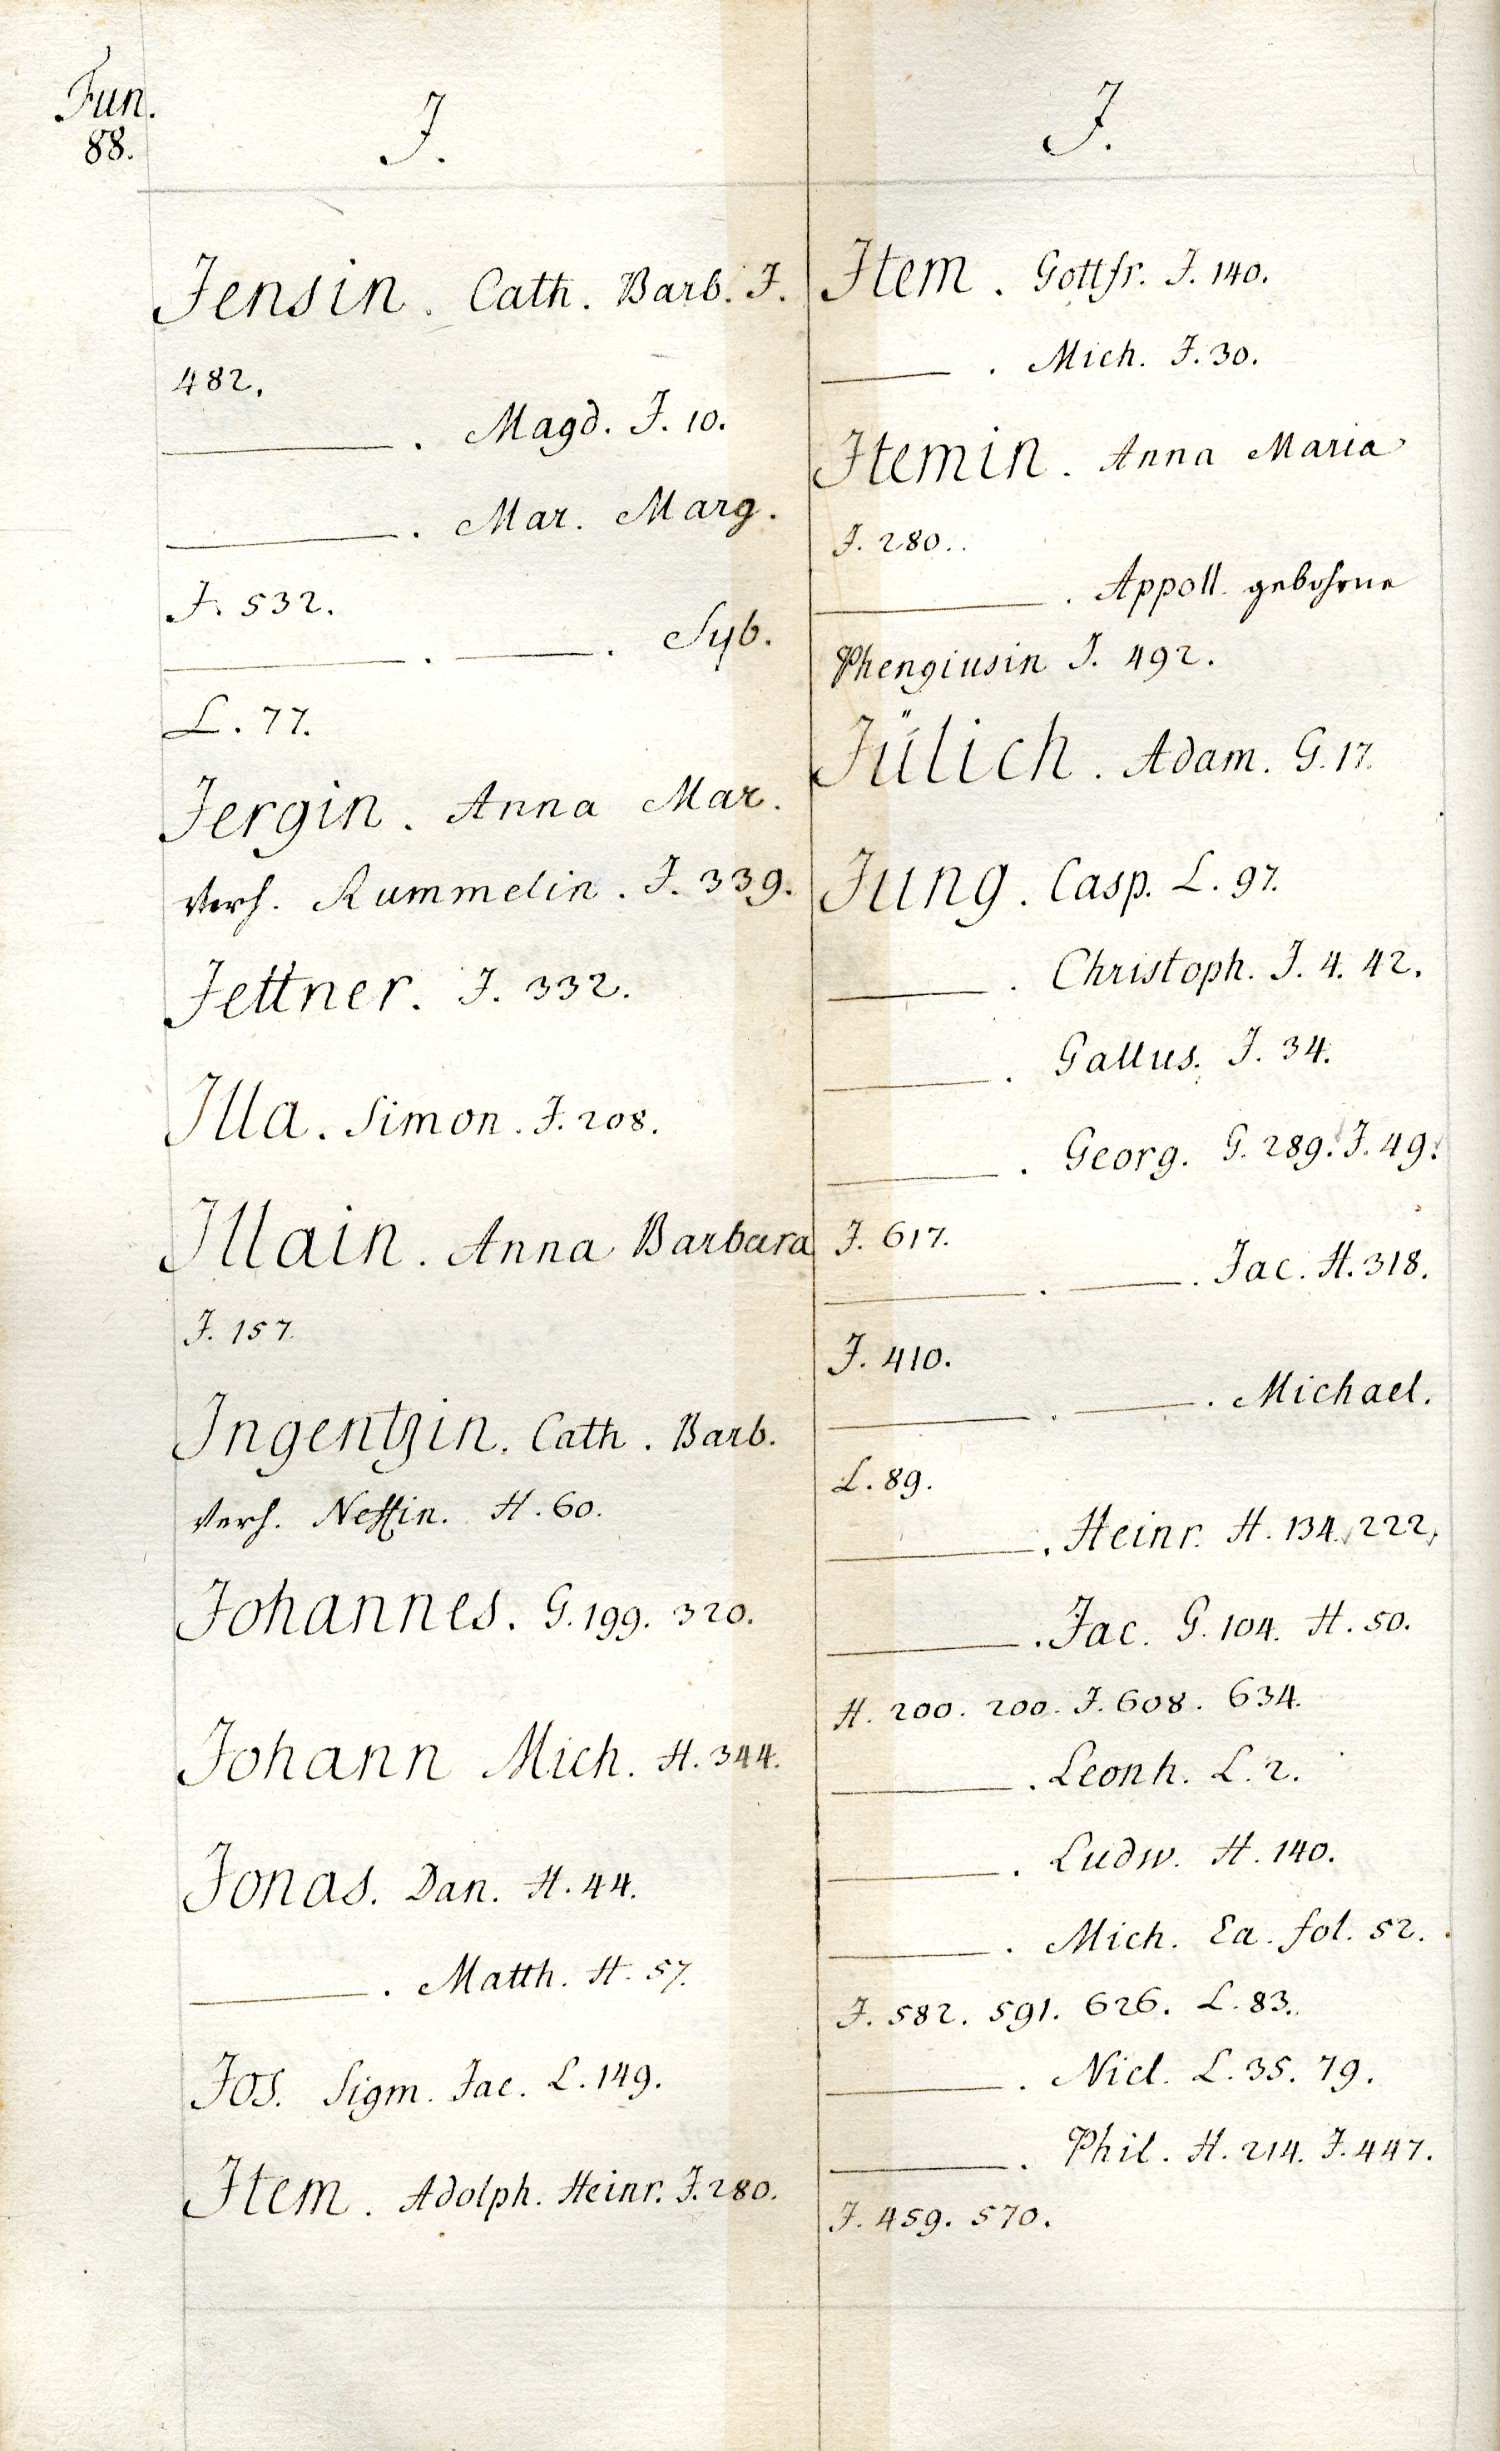 Fun.
88.
J.
Jensin. Cath. Barb. J.
482.
———. Magd. J. 10.
———. Mar. Marg.
J. 532.
———. ———. Syb.
L. 77.
Jergin. Anna Mar.
verh. Rummelin. J. 339.
Jettner. J. 332.
Illa. Simon. J. 208.
Illain. Anna Barbara
J. 157.
Ingentzin. Cath. Barb.
verh. H. 60.
Johannes. G. 199. 320.
Johann Mich. H. 344.
Jonas. Dan. H. 44.
———. Matth. H. 57.
Jos. Sigm. Jac. L. 149.
Item. Adolph. Heinr. J. 280.
J.
Item. Gottfr. J. 140.
———. Mich. J. 30.
Itemin. Anna Maria
J. 280.
———. Appoll. gebohrne
Phengiusin J. 492.
Jülich. Adam. G. 17.
Jung. Casp. L. 97.
———. Christoph. J. 4. 42.
———. Gallus. J. 34.
———. Georg. G. 289. J. 49.
J. 617.
———. ———. Jac. H. 318.
J. 410.
———. ———. Michael.
L. 89.
———. Heinr. H. 134. 222.
———. Jac. G. 104. H. 50.
H. 200. 200. J. 608. 634.
———. Leonh. L. 2.
———. Ludw. H. 140.
———. Mich. Ea. fol. 52.
J. 582. 591. 626. L. 83.
———. Nicl. L. 35. 79.
———. Phil. H. 214. J. 447.
J. 459. 570.